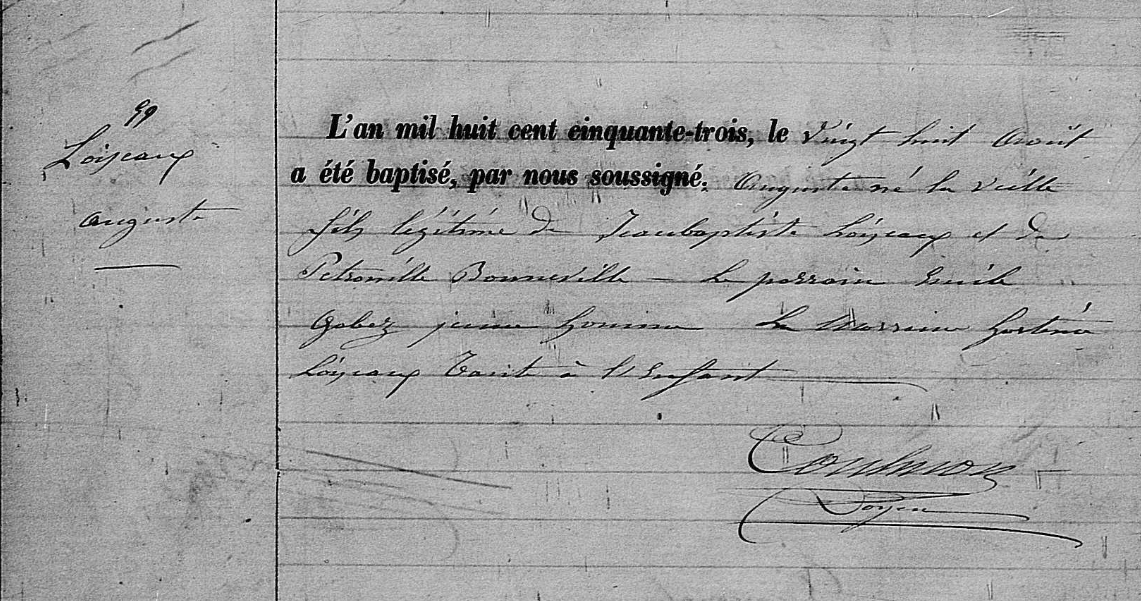 99
Loiseaux
auguste
L'an mil huit cent cinquante-trois, le vingt huit Août
a été baptisé, par nous soussigné, auguste né la veille
fils légitime de Jeanbaptiste Loiseaux et de
Petronille Bonneville – Le parrain Emile
Gobez jeune homme La Marraine hortense
Loiseaux Tante à l'Enfant
Doyen